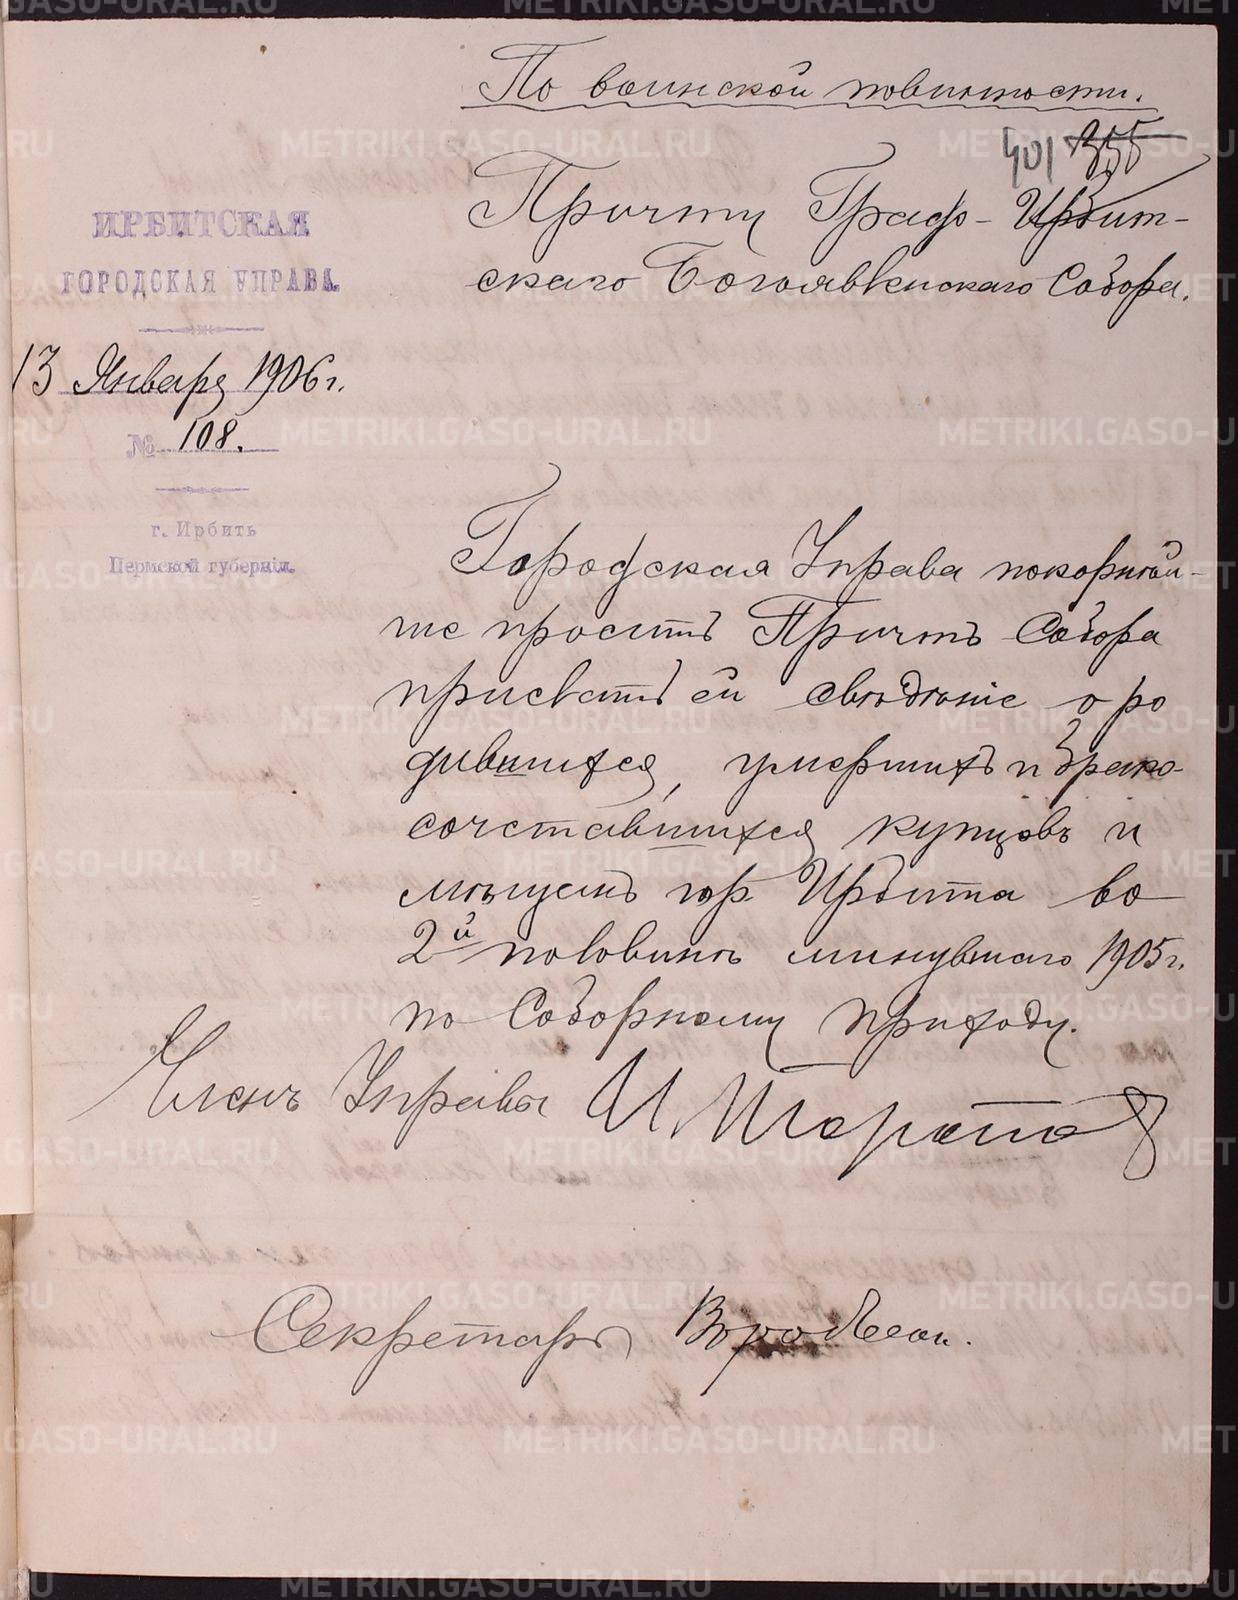 По воинской повинности.
401 355
Причту Градо-Ирбит-
скаго Богоявленскаго Собора.
ИРБИТСКАЯ
ГОРОДСКАЯ УПРАВА.
13 Января 1906 г.
№ 108.
г. Ирбить
Пермской губерніи.
Городская Управа покорнѣй-
ше проситъ Причтъ Собора
прислать ей свѣдѣніе о ро
дившихся, умершихъ и брако-
сочетавшихся купцовъ и
мѣщанъ гор. Ирбита во
2й половинѣ минувшаго 1905 г.
по Соборному приходу.
Членъ Управы И.
Секретарь
METRIKI.GASO-URAL.RU